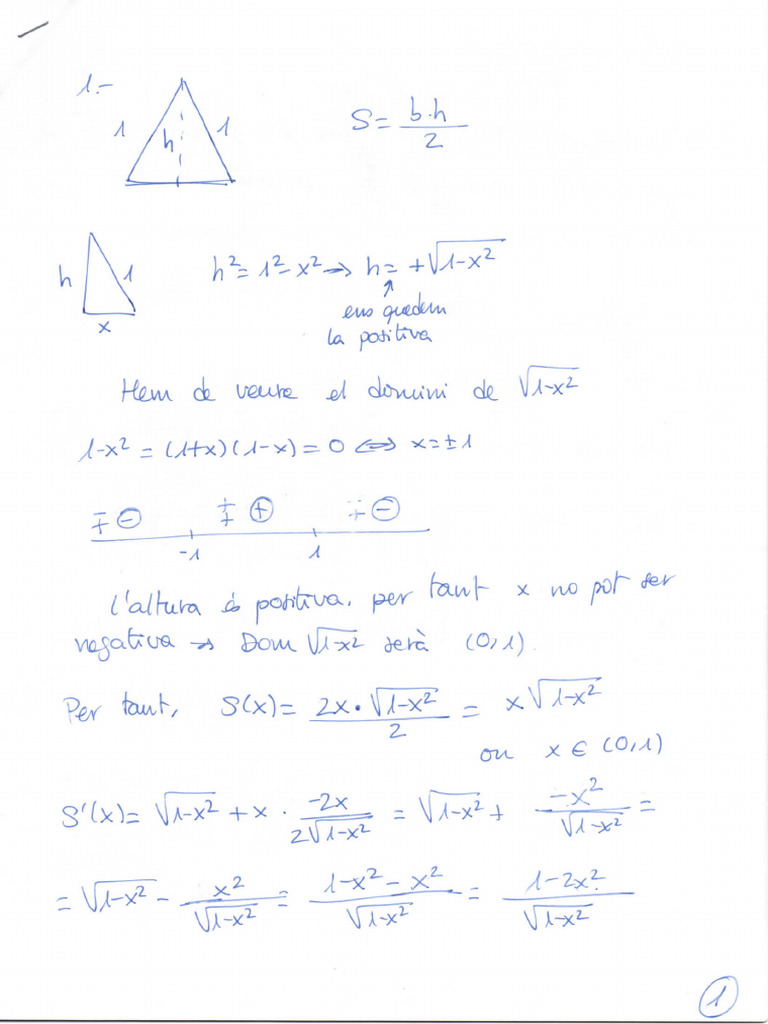 1.-
1 h 1
S = b·h / 2
h 1 x
h² = 1² - x² → h = +√1-x²
↑
ens quedem
la positiva
Hem de veure el domini de √1-x²
1-x² = (1+x)(1-x) = 0 ⇔ x = ±1
∓ ⊖ ‡ ⊕ ∓ ⊖
-1 1
L'altura és positiva, per tant x no pot ser
negativa → Dom √1-x² serà (0,1).
Per tant, S(x) = 2x·√1-x² / 2 = x√1-x²
on x ∈ (0,1)
S'(x) = √1-x² + x · -2x / 2√1-x² = √1-x² + -x² / √1-x² =
= √1-x² - x² / √1-x² = 1-x² - x² / √1-x² = 1-2x² / √1-x²
1